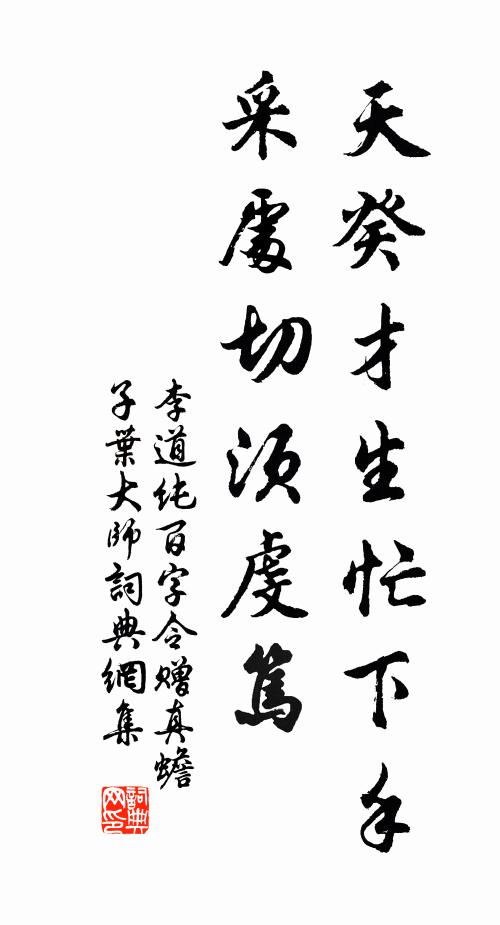 天癸才生忙下手
采處切須虔篤
李道純百字令贈真蟾
子葉大師詞典網集
詞典网印